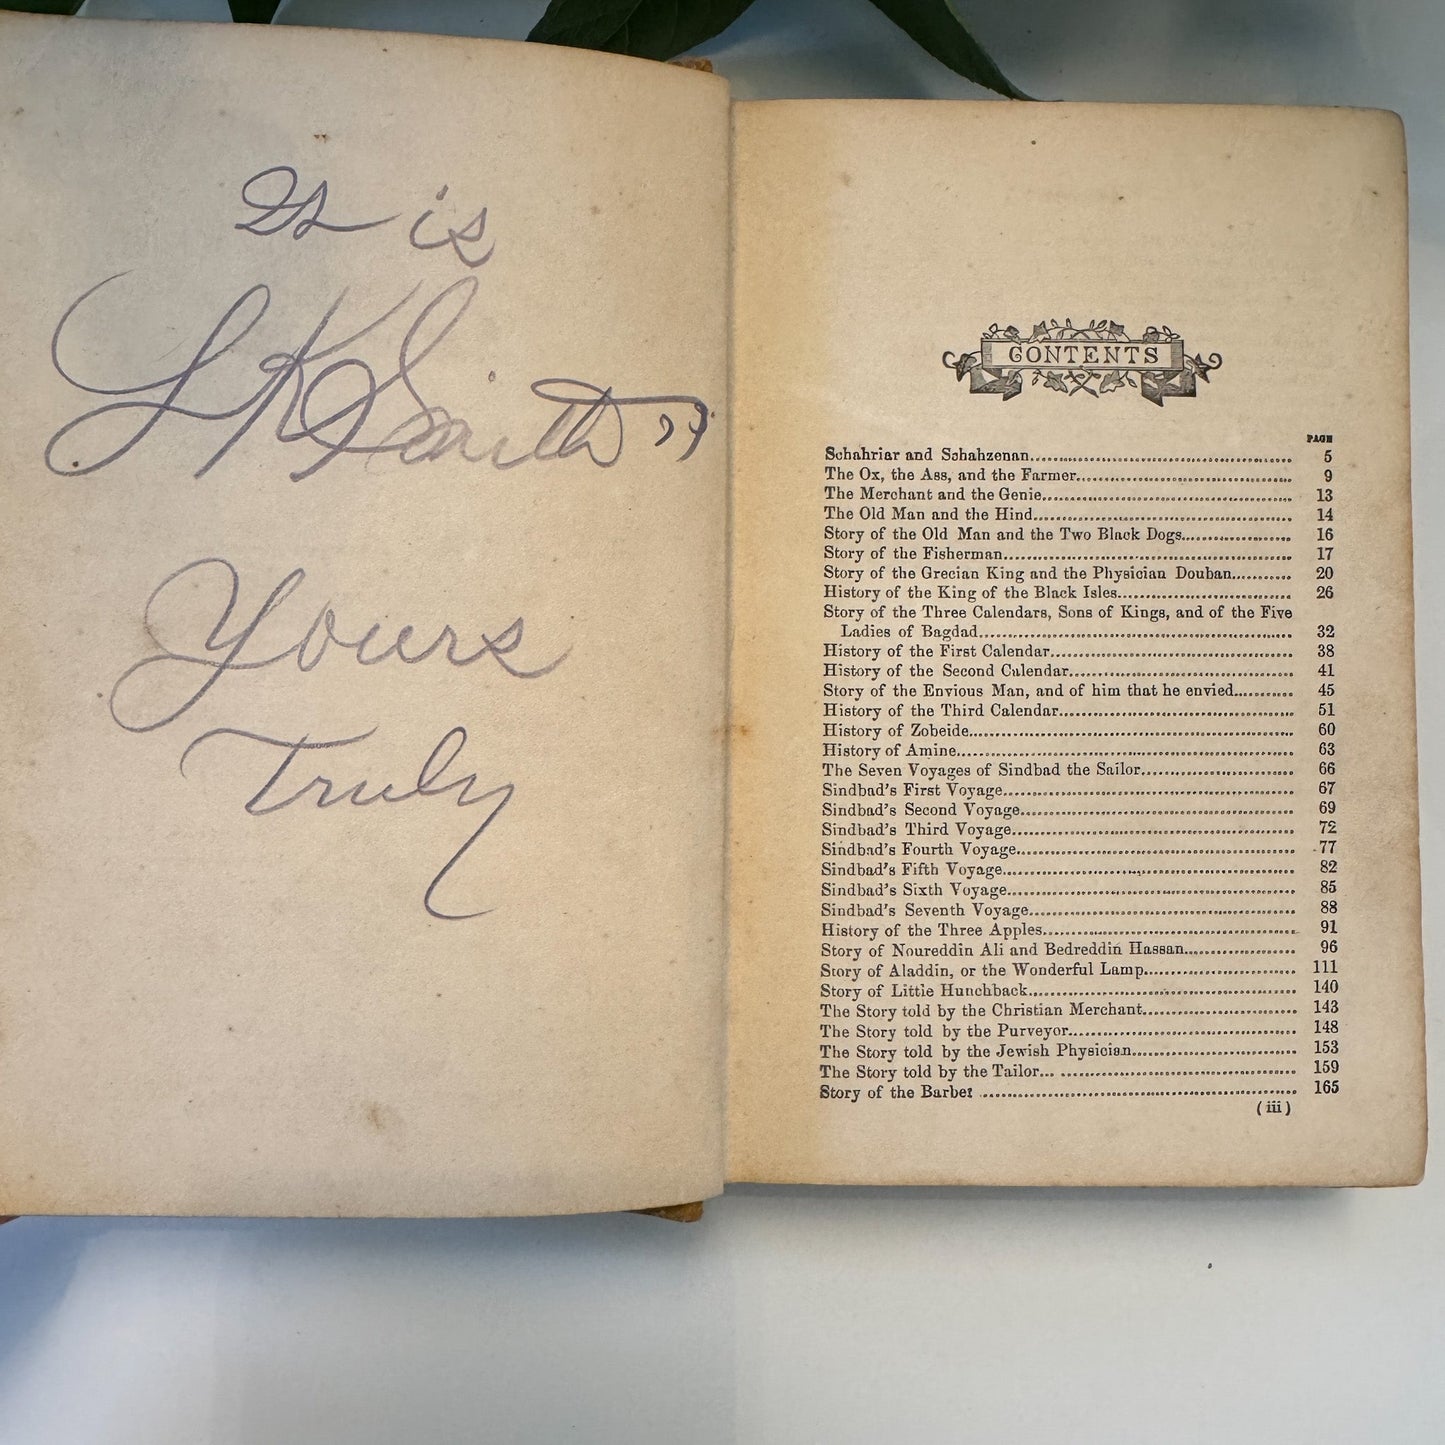 It is
L K Smith
Yours
Truly
CONTENTS
PAGE
Schahriar and Schahzenan........ 5
The Ox, the Ass, and the Farmer........ 9
The Merchant and the Genie........ 13
The Old Man and the Hind........ 14
Story of the Old Man and the Two Black Dogs........ 16
Story of the Fisherman........ 17
Story of the Grecian King and the Physician Douban........ 20
History of the King of the Black Isles........ 26
Story of the Three Calendars, Sons of Kings, and of the Five
Ladies of Bagdad........ 32
History of the First Calendar........ 38
History of the Second Calendar........ 41
Story of the Envious Man, and of him that he envied........ 45
History of the Third Calendar........ 51
History of Zobeide........ 60
History of Amine........ 63
The Seven Voyages of Sindbad the Sailor........ 66
Sindbad's First Voyage........ 67
Sindbad's Second Voyage........ 69
Sindbad's Third Voyage........ 72
Sindbad's Fourth Voyage........ 77
Sindbad's Fifth Voyage........ 82
Sindbad's Sixth Voyage........ 85
Sindbad's Seventh Voyage........ 88
History of the Three Apples........ 91
Story of Noureddin Ali and Bedreddin Hassan........ 96
Story of Aladdin, or the Wonderful Lamp........ 111
Story of Little Hunchback........ 140
The Story told by the Christian Merchant........ 143
The Story told by the Purveyor........ 148
The Story told by the Jewish Physician........ 153
The Story told by the Tailor........ 159
Story of the Barber ........ 165
(iii)